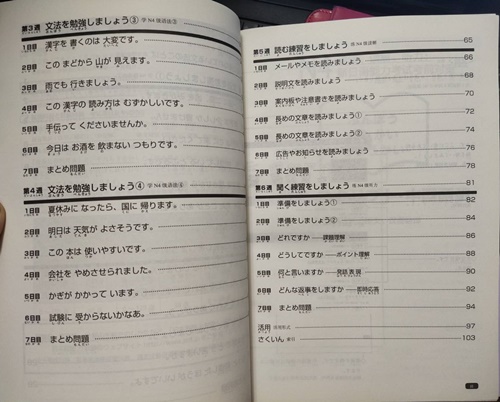 第3週 文法を勉強しましょう③ 学 N4級語法③
1日目 漢字を 書くのは 大変です。
2日目 この まどから 山が 見えます。
3日目 雨でも 行きましょう。
4日目 この 漢字の 読み方は むずかしいです。
5日目 手伝って くださいませんか。
6日目 今日は お酒を 飲まない つもりです。
7日目 まとめ問題
第4週 文法を勉強しましょう④ 学 N4級語法④
1日目 夏休みに なったら、国に 帰ります。
2日目 明日は 天気が よさそうです。
3日目 この 本は 使いやすいです。
4日目 会社を やめさせられました。
5日目 かぎが かかって います。
6日目 試験に 受からないかなあ。
7日目 まとめ問題
第5週 読む練習をしましょう 65
1日目 メールやメモを読みましょう 66
2日目 説明文を読みましょう 68
3日目 案内板や注意書きを読みましょう 70
4日目 長めの文章を読みましょう① 72
5日目 長めの文章を読みましょう② 74
6日目 広告やお知らせを読みましょう 76
7日目 まとめ問題 78
第6週 聞く練習をしましょう 81
1日目 準備をしましょう① 82
2日目 準備をしましょう② 84
3日目 どれですか ──課題理解 86
4日目 どうしてですか ──ポイント理解 88
5日目 何と言いますか ──発話表現 90
6日目 どんな返事をしますか ──即時応答 92
7日目 まとめ問題 94
活用 活用形式 97
さくいん 索引 103